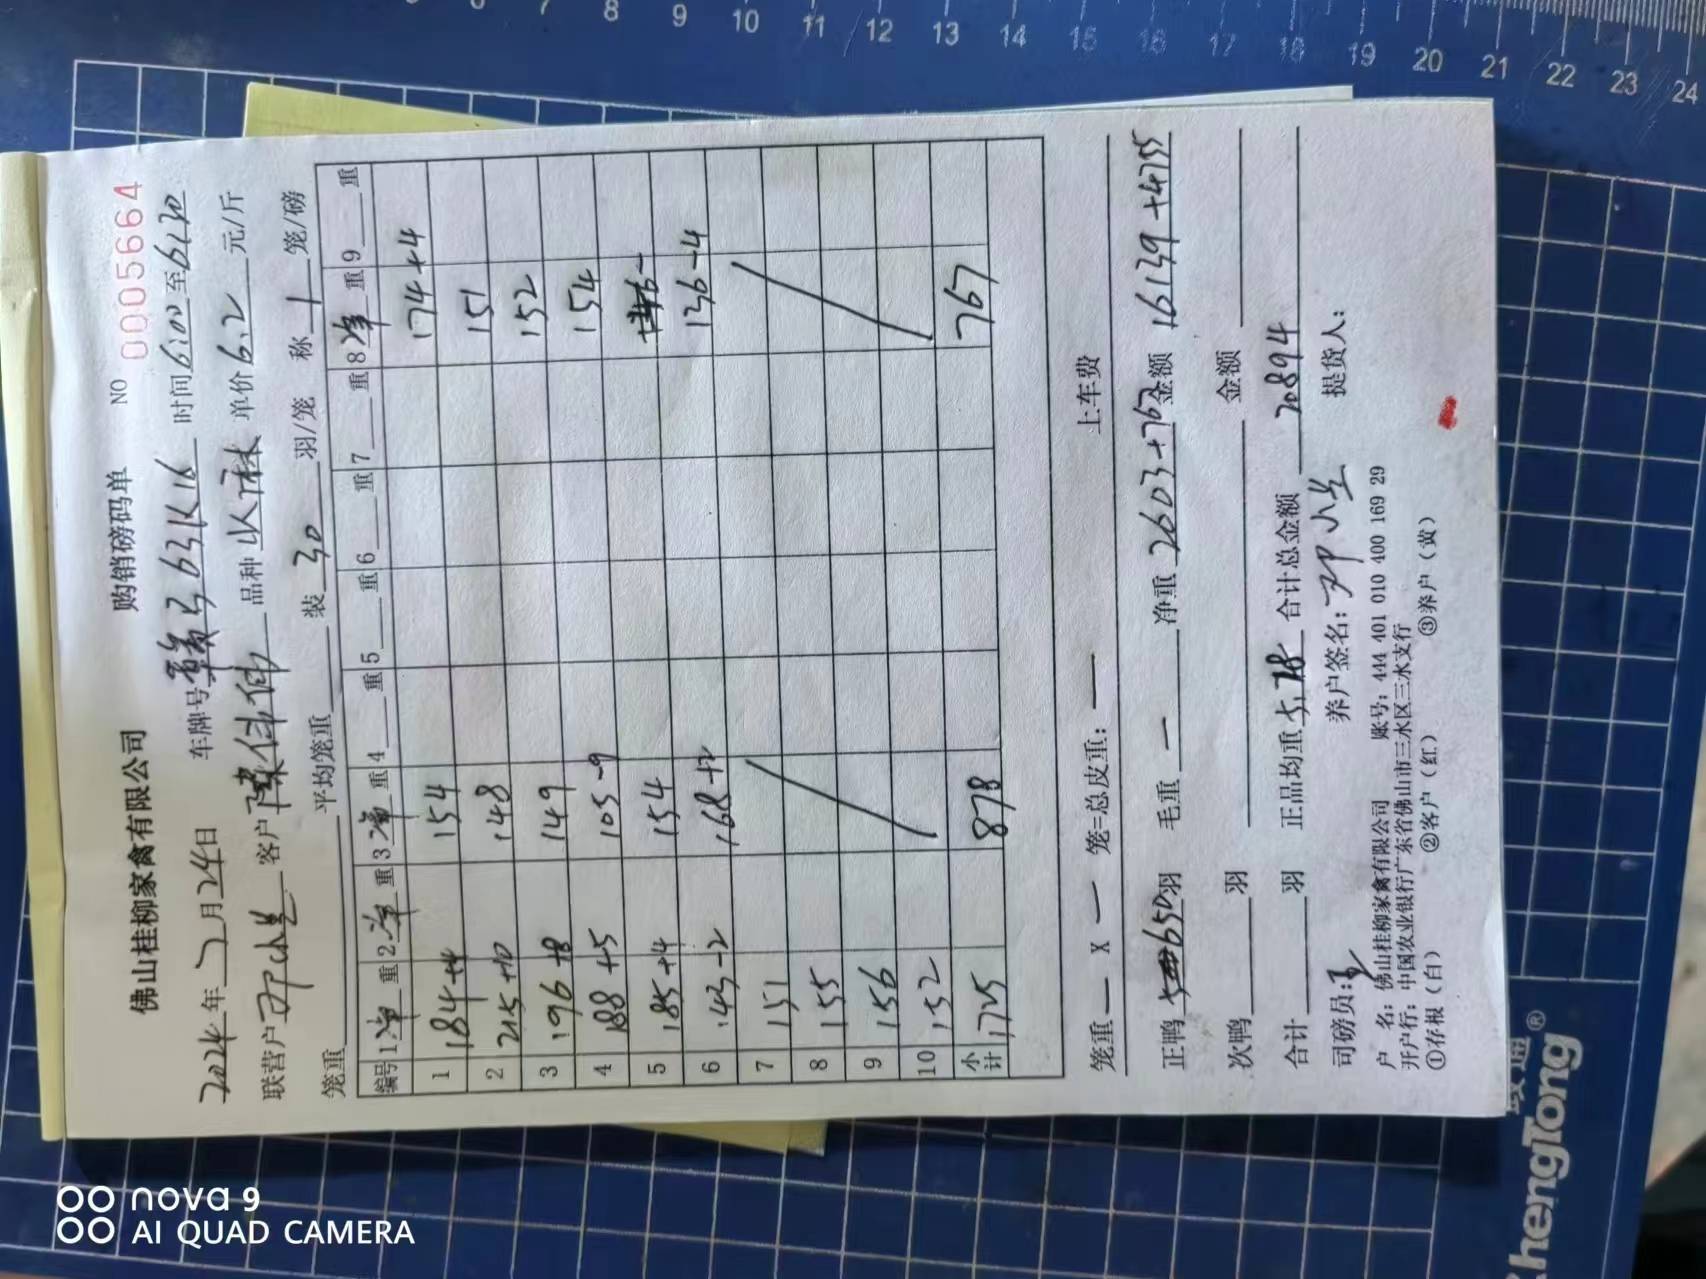 佛山桂柳家禽有限公司 购销磅码单 NO 0005664
2024年2月24日 车牌号 63K16 时间6:00至6:20
联营户邓小兰 客户陈伟伟 品种 单价6.2元/斤
笼重 平均笼重 装30羽/笼 称1笼/磅
编号 1净重 2净重 3净重 4 重 5 重 6 重 7 重 8净重 9 重
1 184+4 154 174+4
2 215+10 148 151
3 196+8 149 152
4 188+5 105-9 154
5 185+4 154
6 143-2 168+2 136-4
7 151
8 155
9 156
10 152
小计 1725 878 767
笼重— X — 笼=总皮重:— 上车费
正鸭650羽 毛重 — 净重2603+767金额16139+4755
次鸭 羽 金额
合计 羽 正品均重5.18 合计总金额 20894
司磅员: 养户签名:邓小兰 提货人:
户 名:佛山桂柳家禽有限公司 账号:444 401 010 400 169 29
开户行:中国农业银行广东省佛山市三水区三水支行
①存根(白) ②客户(红) ③养户(黄)
5 6 7 8 9 10 11 12 13 14 15 16 17 18 19 20 21 22 23 24
ChengTong®
nova 9
AI QUAD CAMERA